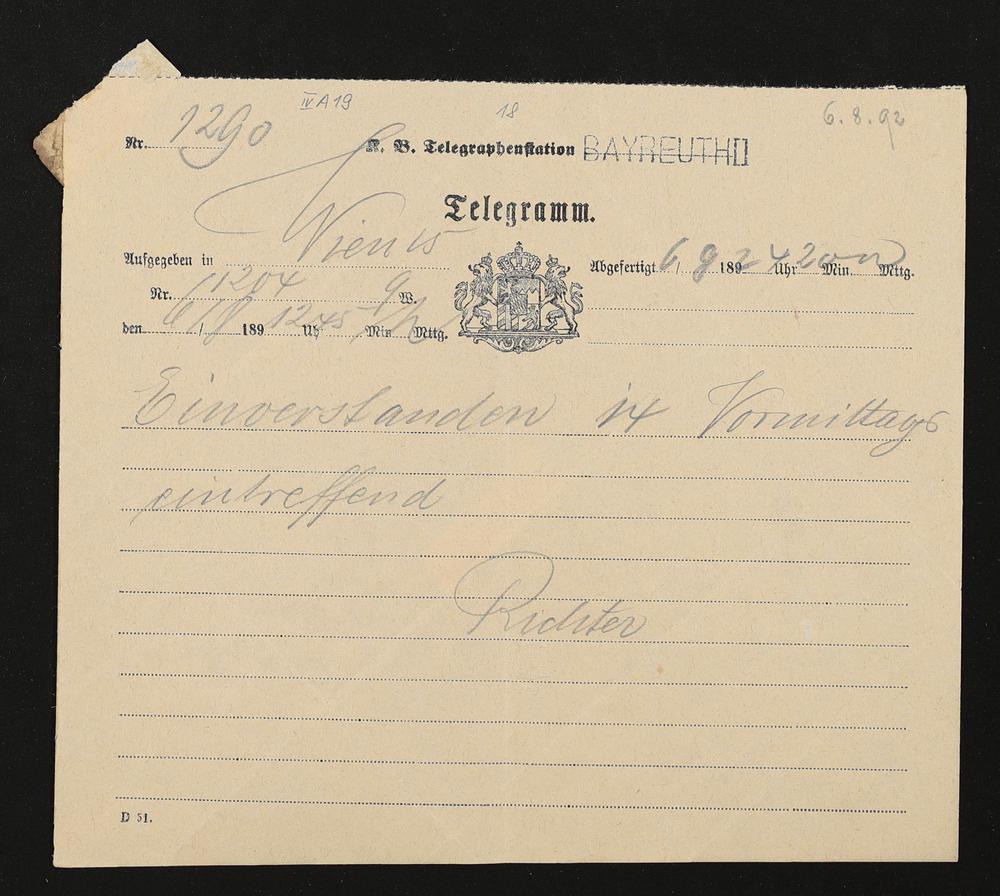 IV A 19
18
6.8.92
Nr. 1290
K. B. Telegraphenstation BAYREUTH
Telegramm.
Aufgegeben in Wien 15
Abgefertigt 6/8 1892 4 Uhr 20 Min. Mttg.
Nr. 11204 9 W.
den 6/8 189 12 Uhr 45 Min Mttg.
Einverstanden 14 Vormittags
eintreffend
Richter
D 51.